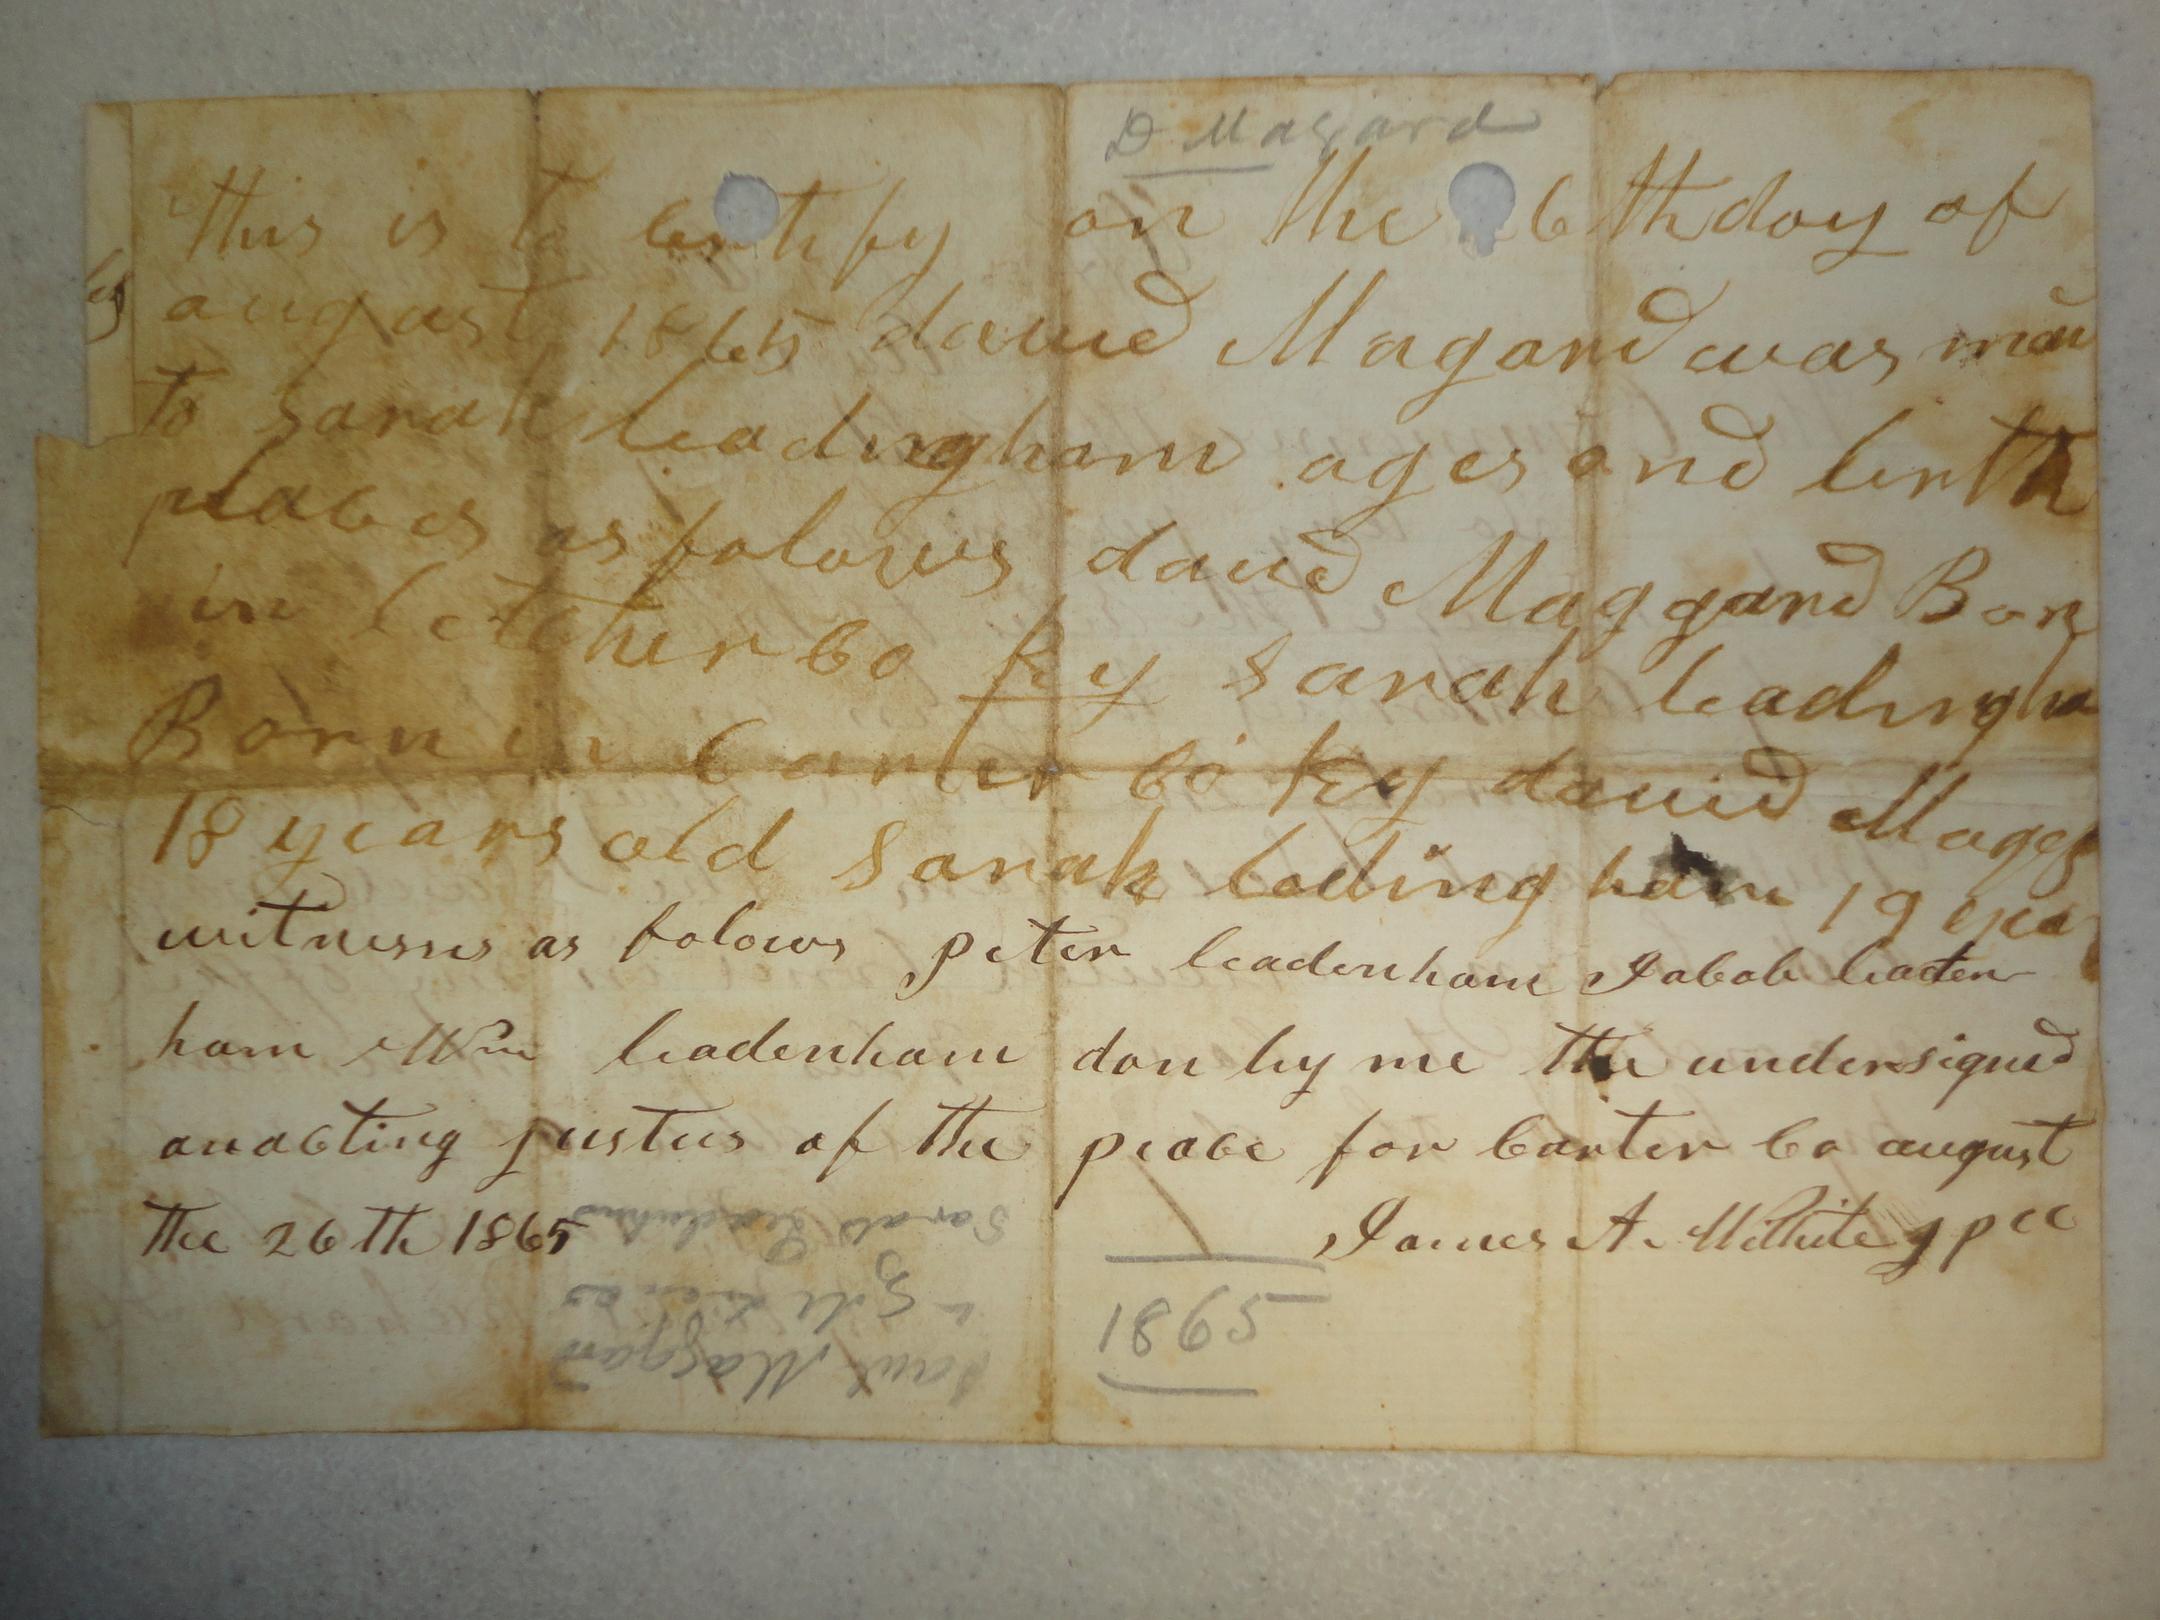 D Magard
this is to certify on the 26th day of
august 1865 david Magard was mar
to sarah leadingham ages and birth
places as folows david Maggard Born
in letcher co ky sarah leadingha
Born in carter co ky david Magg
18 years old sarah leadingham 19 yea
witnesses as folows peter leadenham Jacob leaden
ham Wm leadenham don by me the undersigned
anacting justus of the peace for carter co august
the 26th 1865 James A. Wilhite jpcc
1865
Maggard
Sarah